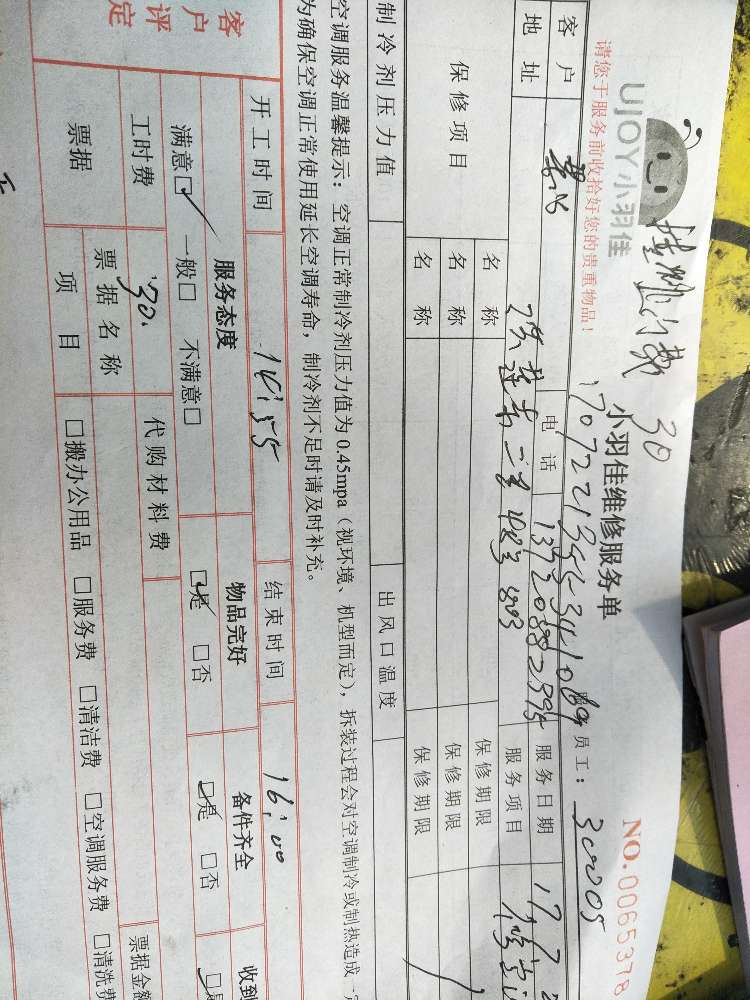 UJOY小羽佳
请您于服务前收拾好您的贵重物品!
30
小羽佳维修服务单
NO.0065378
员工: 300005
客户 电话 服务日期 17.7
地址 服务项目
保修项目 名称 保修期限
名称 保修期限
名称 保修期限
制冷剂压力值 出风口温度
空调服务温馨提示: 空调正常制冷剂压力值为0.45mpa(视环境、机型而定),拆装过程会对空调制冷或制热造成一
为确保空调正常使用延长空调寿命,制冷剂不足时请及时补充。
客户评定
开工时间 14:55 结束时间 16:00
服务态度 物品完好 备件齐全 收到
满意□ 一般□ 不满意□ □是 □否 □是 □否
工时费 30. 代购材料费
票据 票据名称 票据金额
项目 □搬办公用品 □服务费 □清洁费 □空调服务费 □清洗费